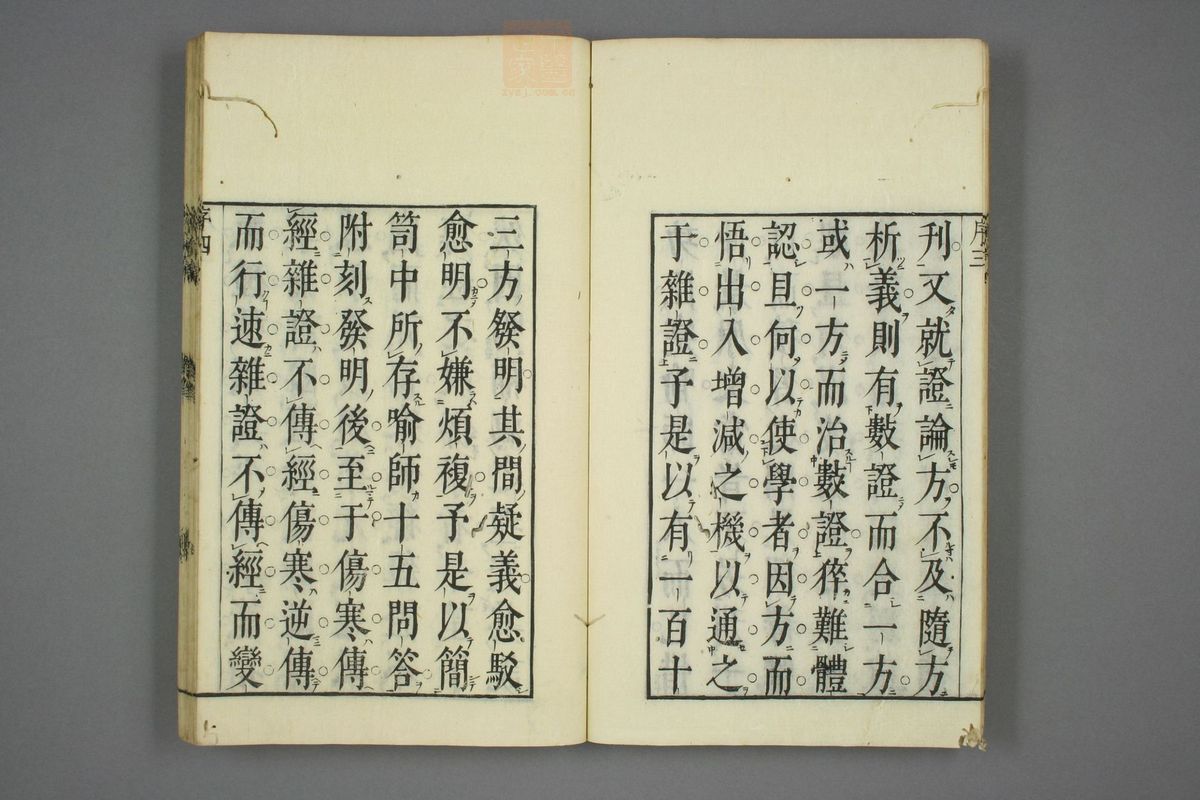 序三
刋又就證論方不及隨方
析義則有數證而合一方
或一方而治數證猝難體
認且何以使學者因方而
悟出入增減之機以通之
于雜證予是以有一百十
三方發明其間疑義愈駁
愈明不嫌煩複予是以簡
笥中所存喻師十五問答
附刻發明後至于傷寒傳
經雜證不傳經傷寒逆傳
而行速雜證不傳經而變
序四
zysj.com.cn